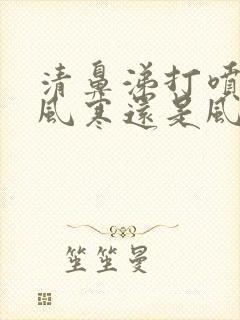 清鼻涕打噴
風寒還是風
笙笙曼